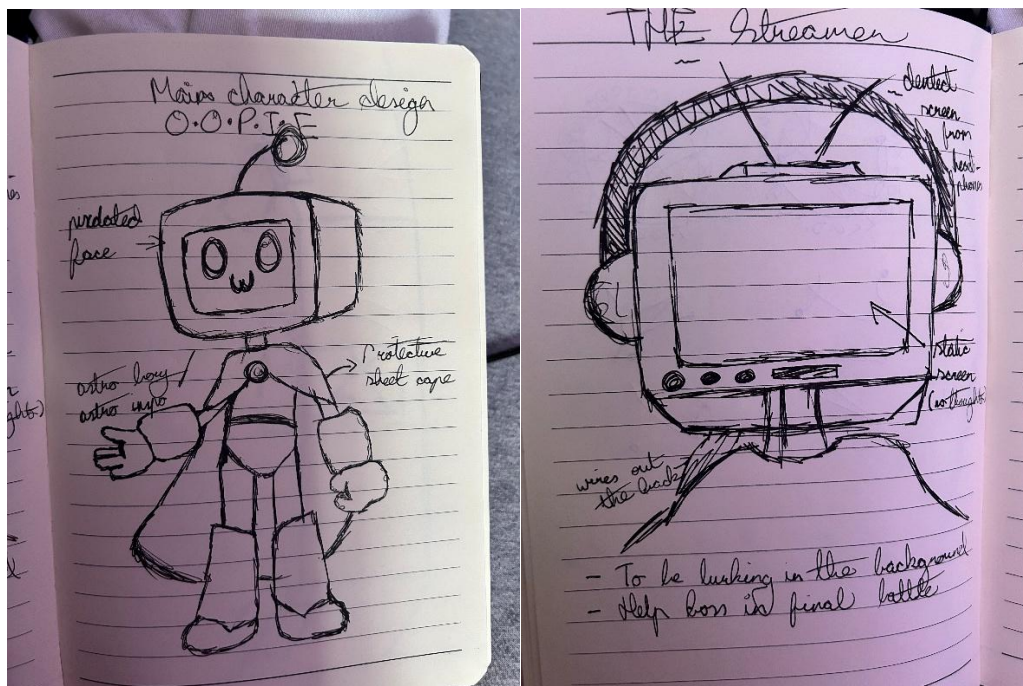 Main character design
O.O.P.I.E
pixelated
face
Protective
sheet cape
astro boy
astro inspo
THE Streamer
dented
screen
from
head-
phones
static
screen
(no thoughts)
wires out
the back
- To be lurking in the background
- Help boss in final battle
ghts)